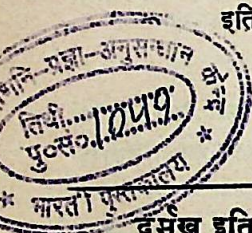 इति
प्रज्ञा-अनुसन्धान
तिथी......
पु०स० 1049
* भारती पुस्तकालय *
दुर्मुख इति